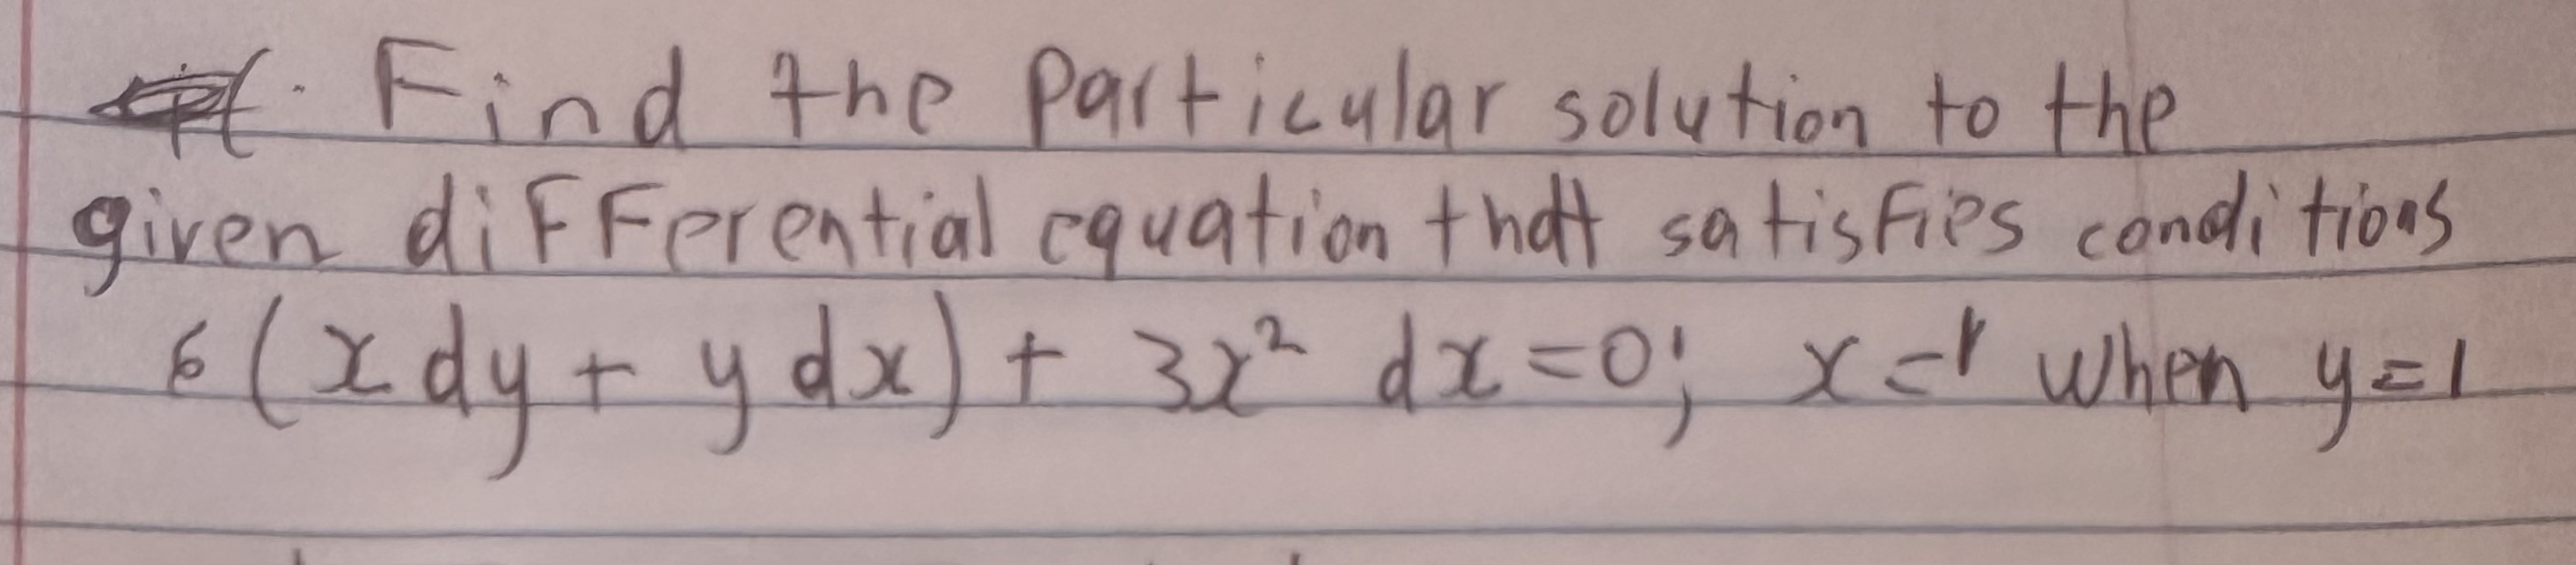 Find the particular solution to the
given differential equation that satisfies conditions
6(x dy + y dx) + 3x² dx = 0; x = 1 when y = 1